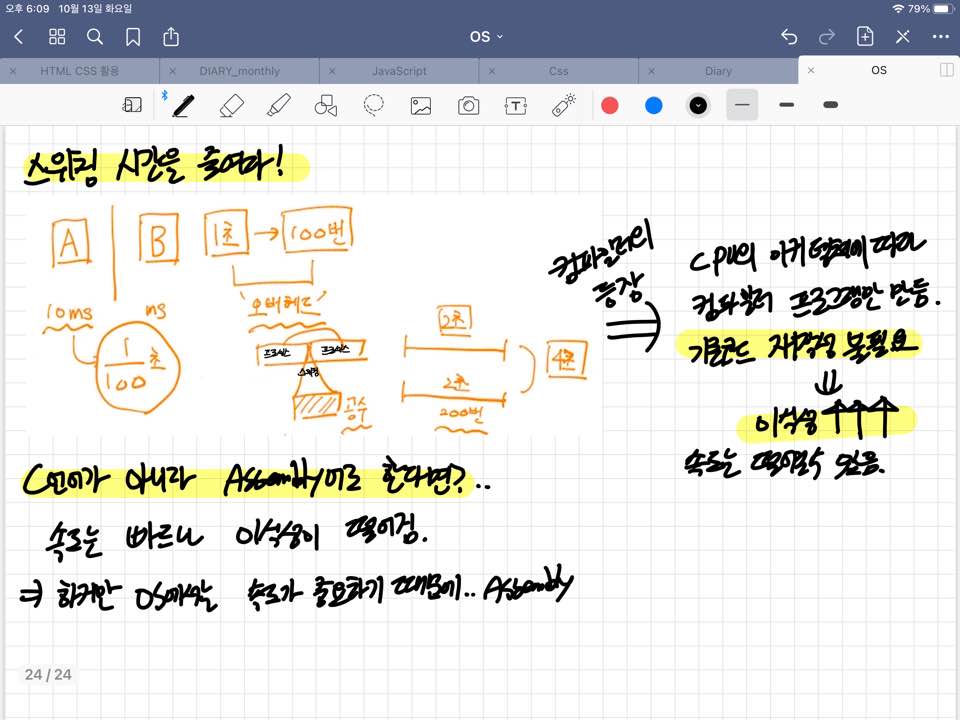 오후 6:09 10월 13일 화요일
79%
OS
HTML CSS 활용
DIARY_monthly
JavaScript
Css
Diary
OS
스위칭 시간을 줄여라!
A B 1초 → 100번
오버헤드
10ms ns
1/100 초
프로세스 프로세스
스위칭
공수
2초
2초
200번
4초
컴파일러의
등장
CPU의 아키텍쳐에 따라
컴파일러 프로그램만 만듬.
기존코드 재작성 불필요
이식성 ↑↑↑
속도는 떨어질수 있음.
C언어가 아니라 Assembly어로 한다면?..
속도는 빠르나 이식성이 떨어짐.
⇒ 하지만 OS에서는 속도가 중요하기 때문에.. Assembly
24 / 24